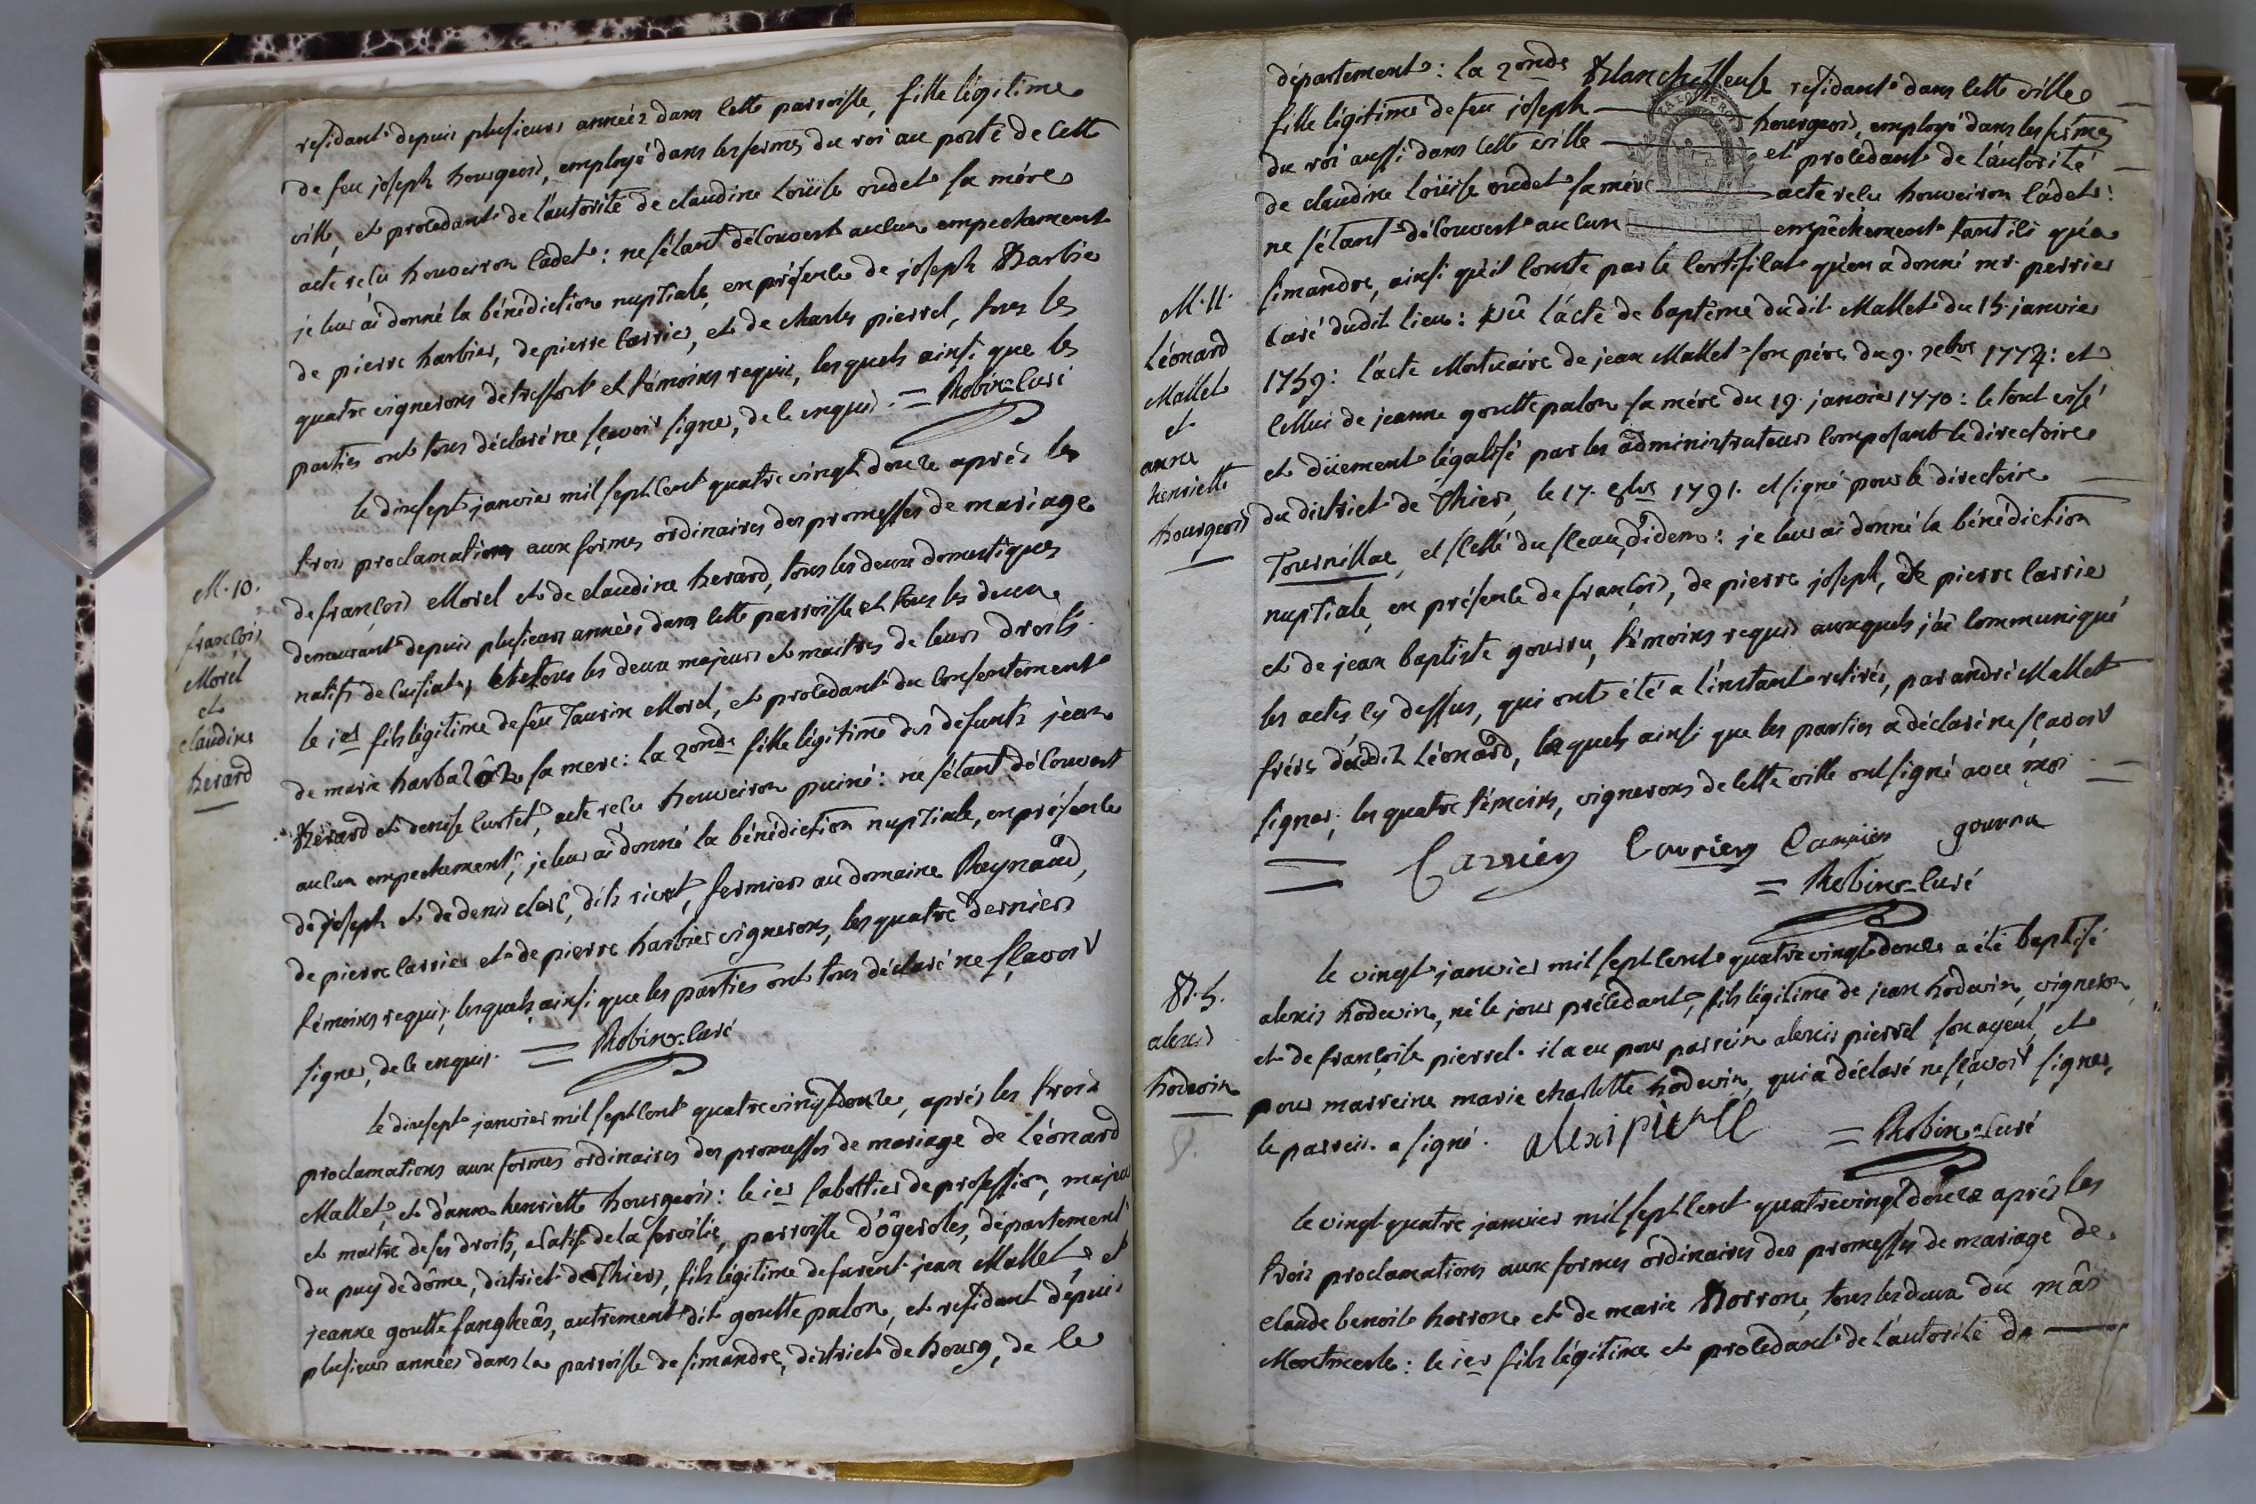 residante depuis plusieurs années dans cette parroisse, fille légitime
de feu joseph bourgeois, employé dans les fermes du roi au poste de cette
ville, et procedante de l'autorité de claudine Loüise oudet sa mére
acte reçu bouveiron cadet: ne s'étant découvert aucun empechement
je leur ai donné la bénédiction nuptiale, en présence de joseph Barbier
de pierre barbier, de pierre carrier, et de charles pierrel, tous les
quatre vignerons de treffort et témoins requis, lesquels ainsi que les
parties ont tous déclaré ne sçavoir signer, de ce enquis. = Robin-curé
le dixsept janvier mil sept cent quatrevingt douze aprés les
trois proclamations aux formes ordinaires des promesses de mariage
M. 10.
françois
Morel
et
claudine
berard
de françois Morel et de claudine berard, tous les deux domestiques
demeurant depuis plusieurs années dans cette parroisse et tous les deux
natifs de cuisiat, et tous les deux majeurs et maitres de leurs droits
le 1er fils légitime de feu Taurin Morel, et procedant du consentement
de marie barba sa mere: la 2onde fille légitime des defunts jean
Bérard et denise curtet, acte reçu bouveiron puiné: ne s'étant découvert
aucun empechement, je leur ai donné la bénédiction nuptiale, en présence
de joseph et de denis clerc, dits ricot, fermiers au domaine Reynaud,
de pierre carrier et de pierre barbier vignerons, les quatre derniers
témoins requis, lesquels ainsi que les parties ont tous déclaré ne sçavoir
signer, de ce enquis. = Robin-curé
le dixsept janvier mil sept cent quatrevingt douze, aprés les trois
proclamations aux formes ordinaires des promesses de mariage de Léonard
Mallet, et d'anne henriette bourgeois: le 1er sabottier de profession, majeur
et maitre de ses droits, natif de la parroisse d'ôgeroles, département
du puy de dôme, district de Thiers, fils légitime de furent jean Mallet, et
jeanne goutte fangheâs, autrement dit goutte palon, et residant depuis
plusieurs années dans la parroisse de simandre, district de bourg, de ce
département: la 2onde Blanchisseuse residante dans cette ville
fille légitime de feu joseph bourgeois, employé dans les fermes
du roi aussi dans cette ville et procedante de l'autorité
de claudine Loüise oudet sa mére acte reçu bouveiron cadet:
ne s'étant découvert aucun empêchement tant ici qu'a
M. 11.
Léonard
Mallet
et
anne
henriette
bourgeois
simandre, ainsi qu'il conste par le certificat qu'en a donné mr. perrier
curé dudit lieu: vû l'acte de baptême dudit Mallet du 15 janvier
1759: l'acte Mortuaire de jean Mallet son pére, du 9. xbre 1774: et
celui de jeanne goutte palon sa mére du 19. janvier 1770: le tout visé
et düement légalisé par les administrateurs composant le directoire
du district de Thiers, le 17. 8bre 1791. et signé pour le directoire
Tournillac, et scellé du sceau d'idem: je leur ai donné la bénédiction
nuptiale, en présence de françois, de pierre joseph, de pierre carrier
et de jean baptiste gourru, témoins requis auxquels j'ai communiqué
les actes cy dessus, qui ont été a l'instant retirés, par andré Mallet
frére dudit Léonard, lequels ainsi que les parties a déclaré ne sçavoir
signer; les quatre témoins, vignerons de cette ville ont signé avec moi
Carrier Carrier Carrier gourru
= Robin-curé
B. 5.
alexis
bodevin
le vingt janvier mil sept cent quatrevingt douze a été baptisé
alexis bodevin, né le jour précedant, fils légitime de jean bodevin, vigneron,
et de françoise pierrel. il a eu pour parrein alexis pierrel son ayeul, et
pour marreine marie charlotte bodevin, qui a déclaré ne sçavoir signer,
le parrein a signé. alexi pierrel = Robin-curé
le vingt quatre janvier mil sept cent quatrevingt douze aprés les
trois proclamations aux formes ordinaires des promesses de mariage de
claude benoit borron et de marie Borron, tous les deux du mâs
Montmerle: le 1er fils légitime et procedant de l'autorité de